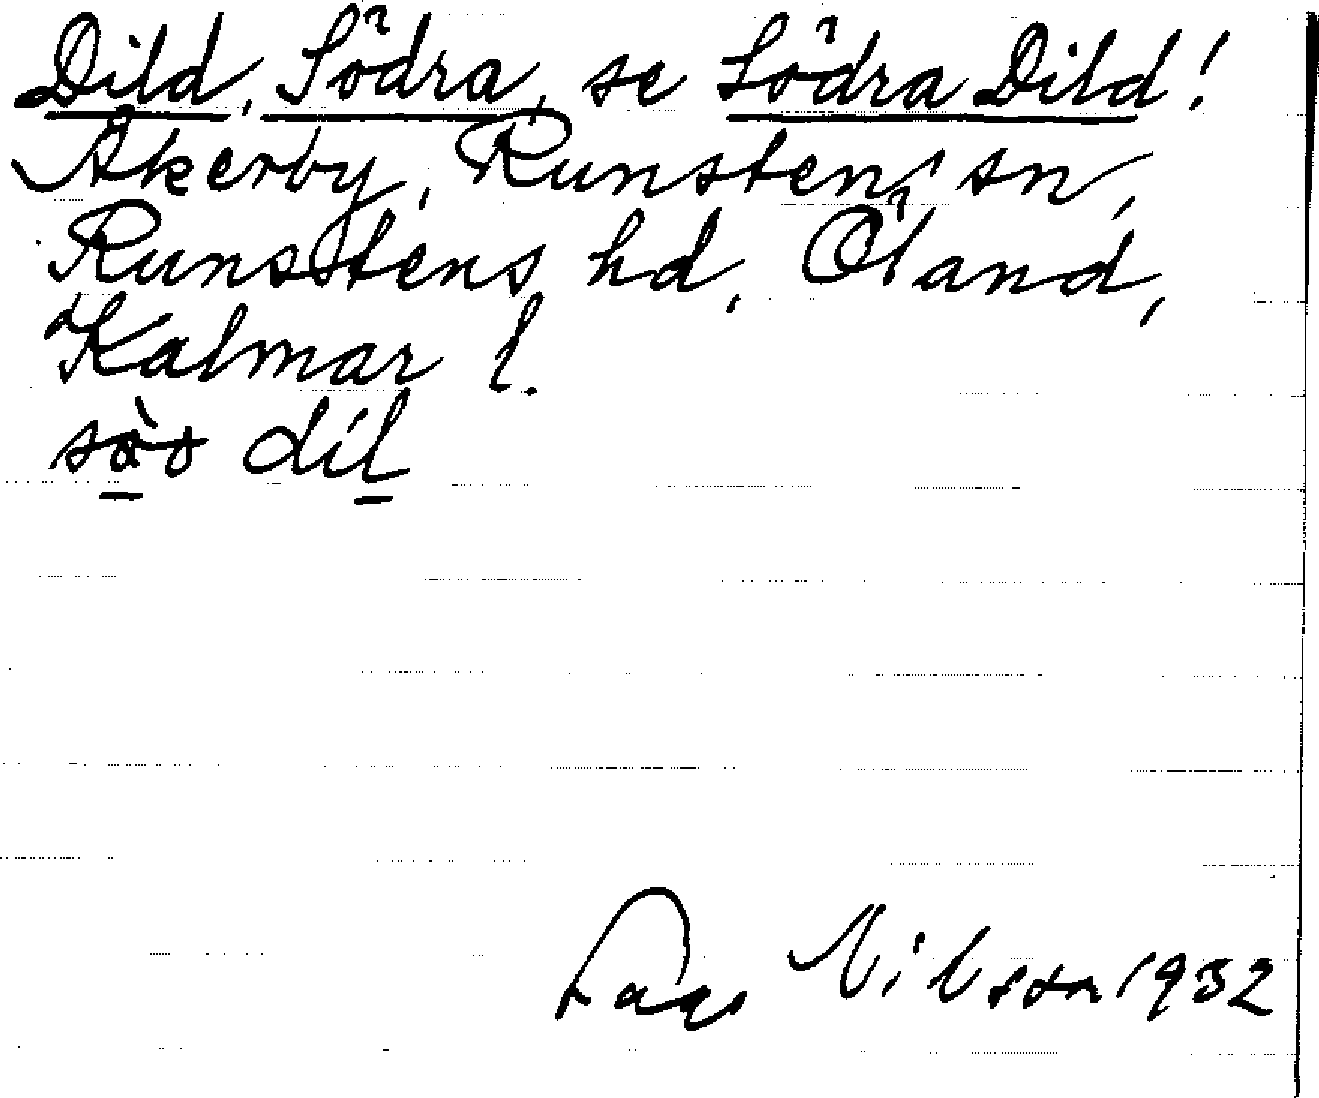 Dild, Södra, se Södra Dild!
Åkerby, Runstens sn,
Runstens hd, Öland,
Kalmar l.
dil
Nilsson 1932